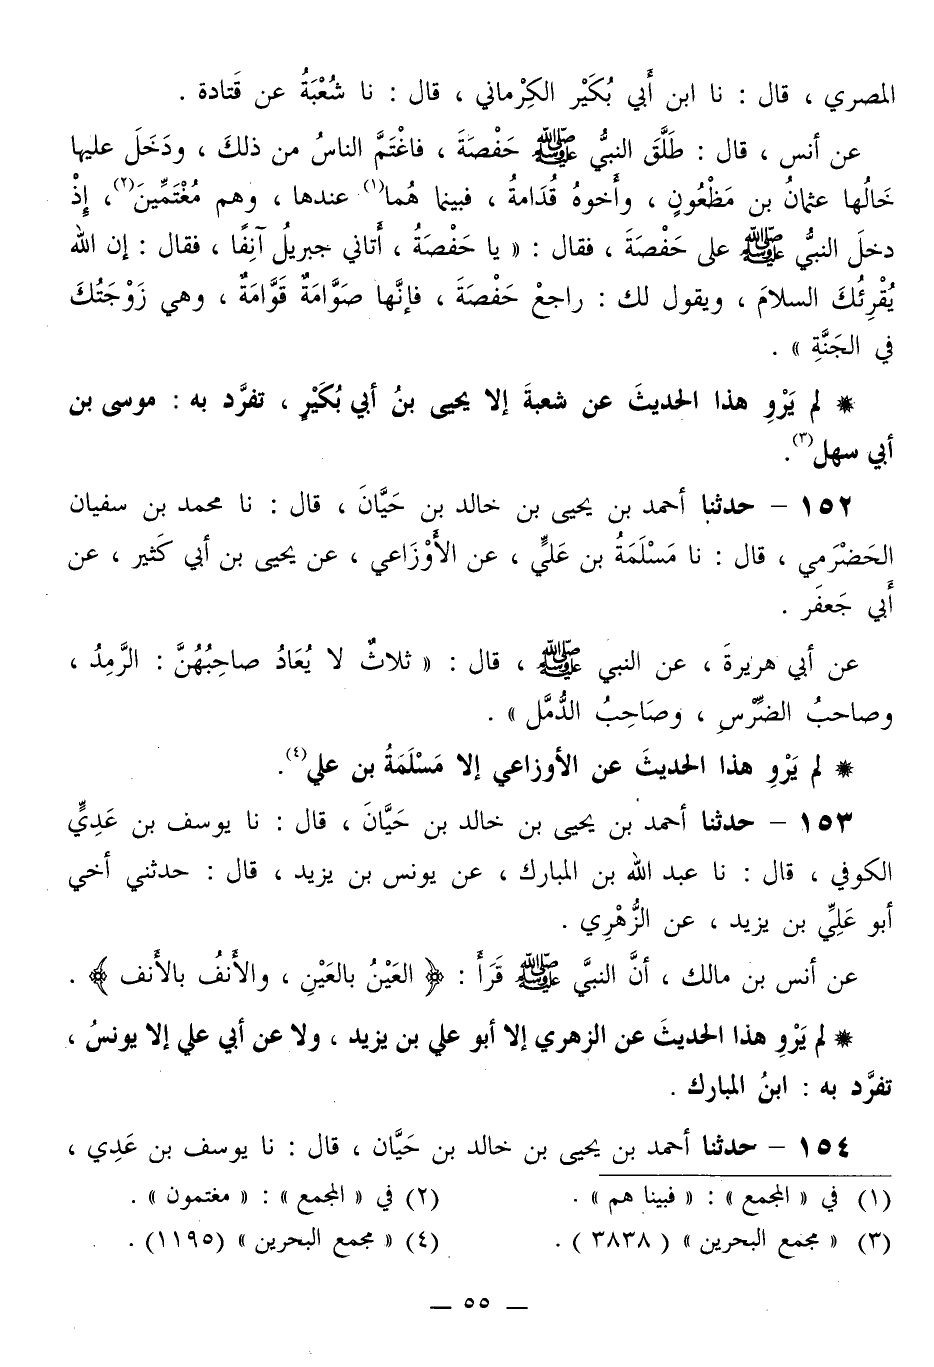 المصري ، قال : نا ابن أَبي بُكَيْر الكِرْماني ، قال : نا شُعْبَةُ عن قَتادة .
عن أنس ، قال : طَلَّقَ النبيُّ ﷺ حَفْصَةَ ، فاغْتَمَّ الناسُ من ذلكَ ، ودَخَلَ عليها
خَالُها عثمانُ بن مَظْعُونٍ ، وأَخوهُ قُدَامةُ ، فبينما هُما(١) عندها ، وهم مُغْتَمِّينَ(٢)، إِذْ
دخلَ النبيُّ ﷺ على حَفْصَةَ ، فقال : « يا حَفْصَةُ ، أَتاني جبريلُ آنِفًا ، فقال : إن الله
يُقْرِئُكَ السلامَ ، ويقول لك : راجعْ حَفْصَةَ ، فإنَّها صَوَّامَةٌ قَوَّامَةٌ ، وهي زَوْجَتُكَ
في الجَنَّةِ » .
* لم يَرْوِ هذا الحديثَ عن شعبةَ إلا يحيى بنُ أبي بُكَيْرٍ ، تفرَّد به : موسى بن
أبي سهل(٣).
١٥٢ – حدثنا أحمد بن يحيى بن خالد بن حَيَّانَ ، قال : نا محمد بن سفيان
الحَضْرَمي ، قال : نا مَسْلَمَةُ بن عَليٍّ ، عن الأَوْزَاعي ، عن يحيى بن أبي كَثير ، عن
أَبي جَعفَر .
عن أبي هريرةَ ، عن النبي ﷺ ، قال : « ثلاثٌ لا يُعَادُ صاحِبُهُنَّ : الرَّمِدُ ،
وصاحبُ الضِّرْسِ ، وصَاحِبُ الدُّمَّل » .
* لم يَرْوِ هذا الحديثَ عن الأوزاعي إلا مَسْلَمَةُ بن علي(٤).
١٥٣ – حدثنا أحمد بن يحيى بن خالد بن حَيَّانَ ، قال : نا يوسف بن عَدِيٍّ
الكوفي ، قال : نا عبد الله بن المبارك ، عن يونس بن يزيد ، قال : حدثني أخي
أبو عَلِيِّ بن يزيد ، عن الزُّهْرِي .
عن أنس بن مالك ، أنَّ النبيَّ ﷺ قَرَأَ : ﴿ العَيْنُ بالعَيْنِ ، والأَنفُ بالأَنف ﴾ .
* لم يَرْوِ هذا الحديثَ عن الزهري إلا أبو علي بن يزيد ، ولا عن أبي علي إلا يونسُ ،
تفرَّد به : ابنُ المبارك .
١٥٤ – حدثنا أحمد بن يحيى بن خالد بن حَيَّان ، قال : نا يوسف بن عَدِي ،
(١) في « المجمع » : « فبينا هم » .
(٢) في « المجمع » : « مغتمون » .
(٣) « مجمع البحرين » ( ٣٨٣٨ ) .
(٤) « مجمع البحرين » (١١٩٥) .
— ٥٥ —